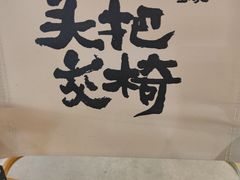 头把
交椅